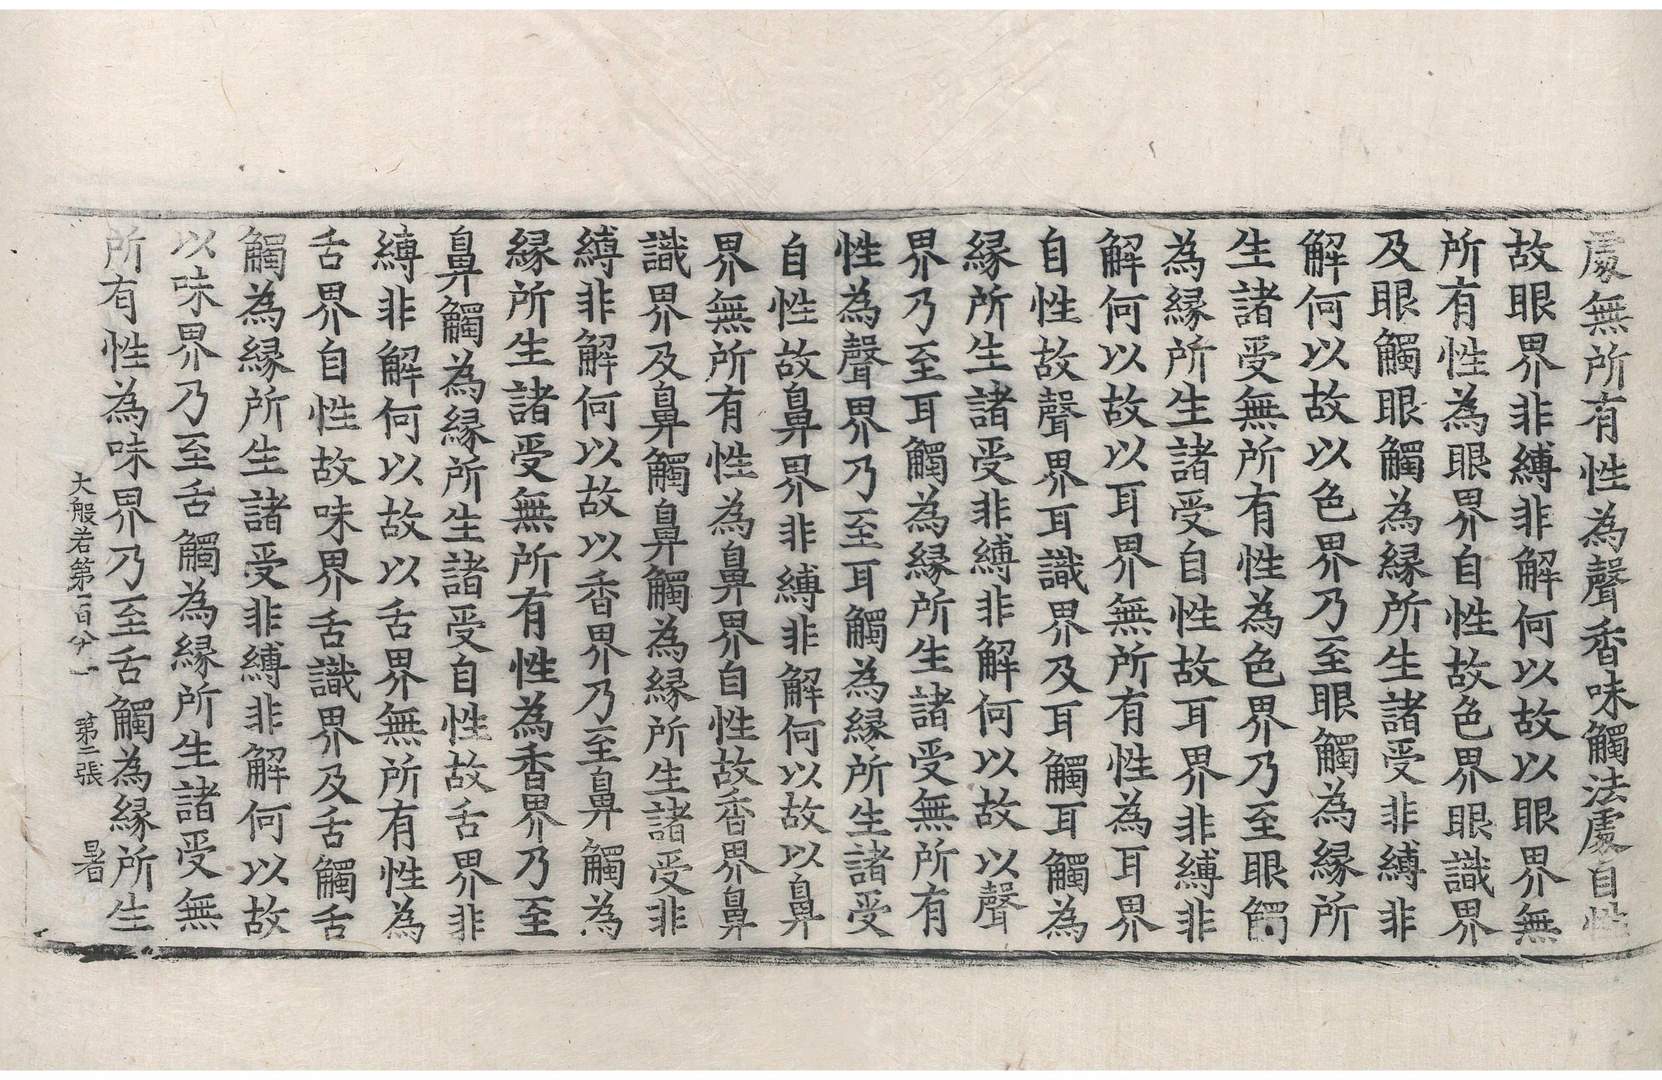 處無所有性為聲香味觸法處自性
故眼界非縛非解何以故以眼界無
所有性為眼界自性故色界眼識界
及眼觸眼觸為縁所生諸受非縛非
解何以故以色界乃至眼觸為縁所
生諸受無所有性為色界乃至眼觸
為縁所生諸受自性故耳界非縛非
解何以故以耳界無所有性為耳界
自性故聲界耳識界及耳觸耳觸為
縁所生諸受非縛非解何以故以聲
界乃至耳觸為縁所生諸受無所有
性為聲界乃至耳觸為縁所生諸受
自性故鼻界非縛非解何以故以鼻
界無所有性為鼻界自性故香界鼻
識界及鼻觸鼻觸為縁所生諸受非
縛非解何以故以香界乃至鼻觸為
縁所生諸受無所有性為香界乃至
鼻觸為縁所生諸受自性故舌界非
縛非解何以故以舌界無所有性為
舌界自性故味界舌識界及舌觸舌
觸為縁所生諸受非縛非解何以故
以味界乃至舌觸為縁所生諸受無
所有性為味界乃至舌觸為縁所生
大般若第一百八十一 第二張 暑